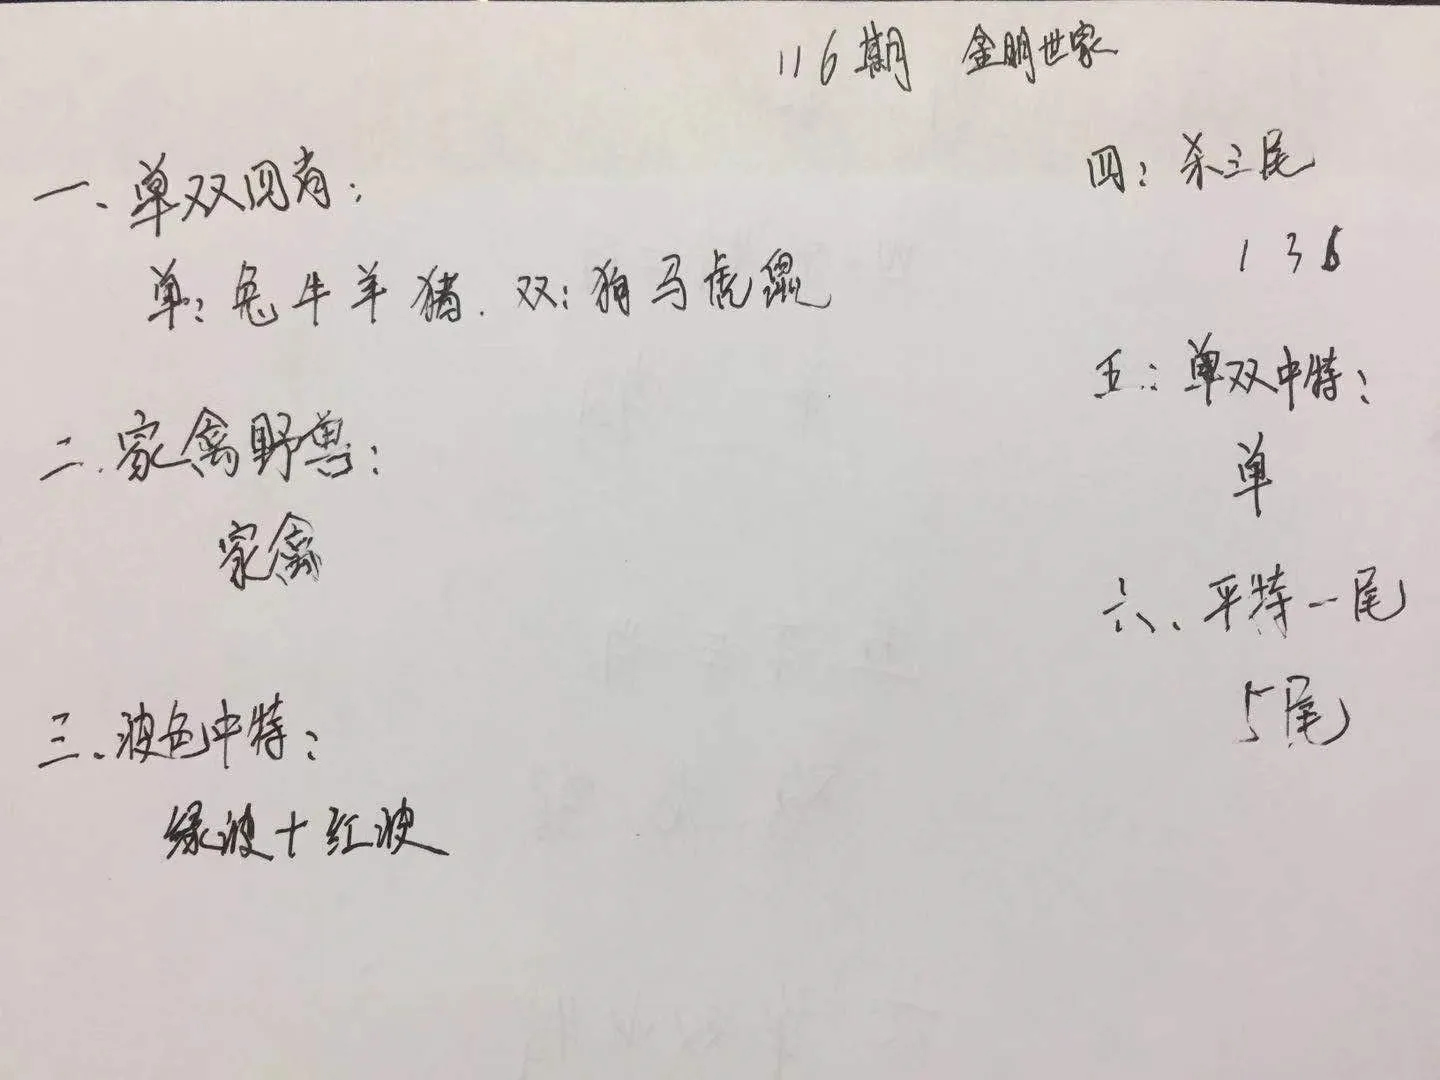 116期 金明世家
一、单双四肖：
单：兔牛羊猪．双：狗马虎鼠
二．家禽野兽：
家禽
三、波色中特：
绿波+红波
四：杀三尾
1 3 6
五：单双中特：
单
六、平特一尾
5尾